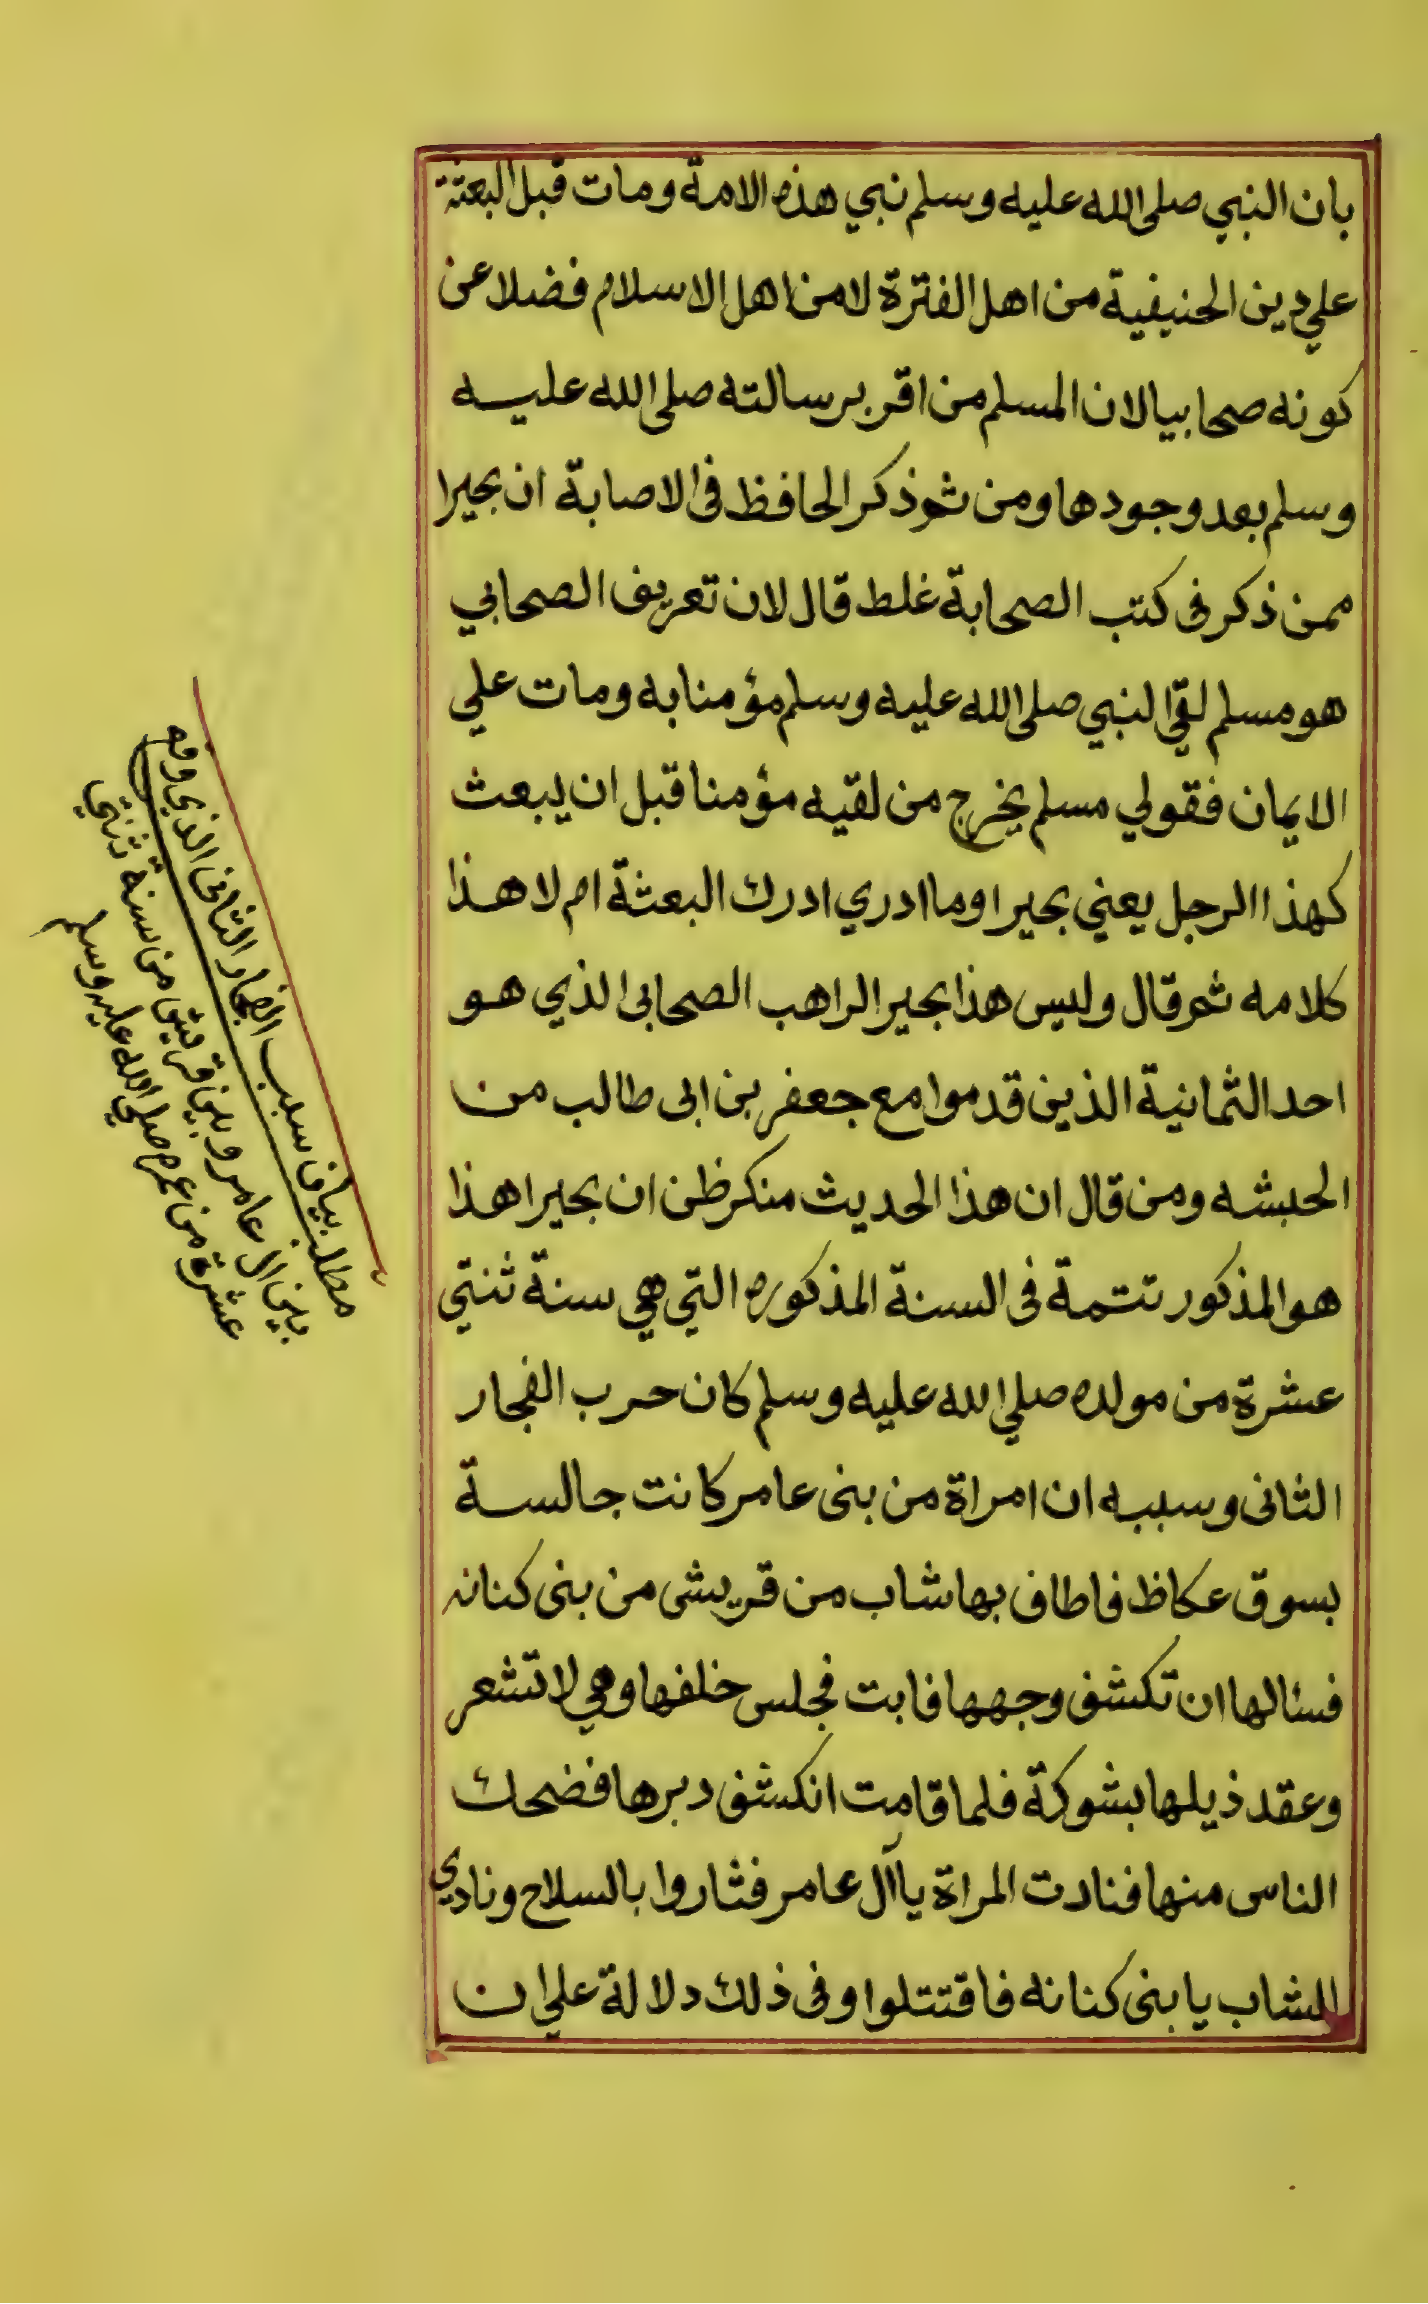 بان النبي صلى الله عليه وسلم نبي هذه الامة ومات قبل البعثة
علي دين الحنيفية من اهل الفترة لا من اهل الاسلام فضلا عن
كونه صحابيا لان المسلم من اقر برسالته صلى الله عليه
وسلم بعد وجودها ومن ثم ذكر الحافظ فى الاصابة ان بحيرا
ممن ذكر فى كتب الصحابة غلط قال لان تعريف الصحابي
هو مسلم لقي النبي صلى الله عليه وسلم مؤمنا به ومات علي
الايمان فقولي مسلم يخرج من لقيه مؤمنا قبل ان يبعث
كهذا الرجل يعني بحيرا وما ادري ادرك البعثة ام لا هذا
كلامه ثم قال وليس هذا بحير الراهب الصحابى الذي هو
احد الثمانية الذين قدموا مع جعفر بن ابى طالب من
الحبشه ومن قال ان هذا الحديث منكر ظن ان بحيرا هذا
هو المذكور تتمة فى السنة المذكوره التي هي سنة ثنتي
عشرة من مولده صلي الله عليه وسلم كان حرب الفجار
الثانى وسببه ان امراة من بنى عامر كانت جالسة
بسوق عكاظ فاطاف بها شاب من قريش من بنى كنانه
فسئالها ان تكشف وجهها فابت فجلس خلفها وهي لا تشعر
وعقد ذيلها بشوكة فلما قامت انكشف دبرها فضحك
الناس منها فنادت المراة يا آل عامر فثاروا بالسلاح ونادي
الشاب يا بنى كنانه فاقتتلوا وفى ذلك دلالة علي ان
مطلب بيان سبب الفجار الثانى الذى وقع
بين ال عامر وبين قريش من سنة ثنتي
عشرة من عمره صلي الله عليه وسلم